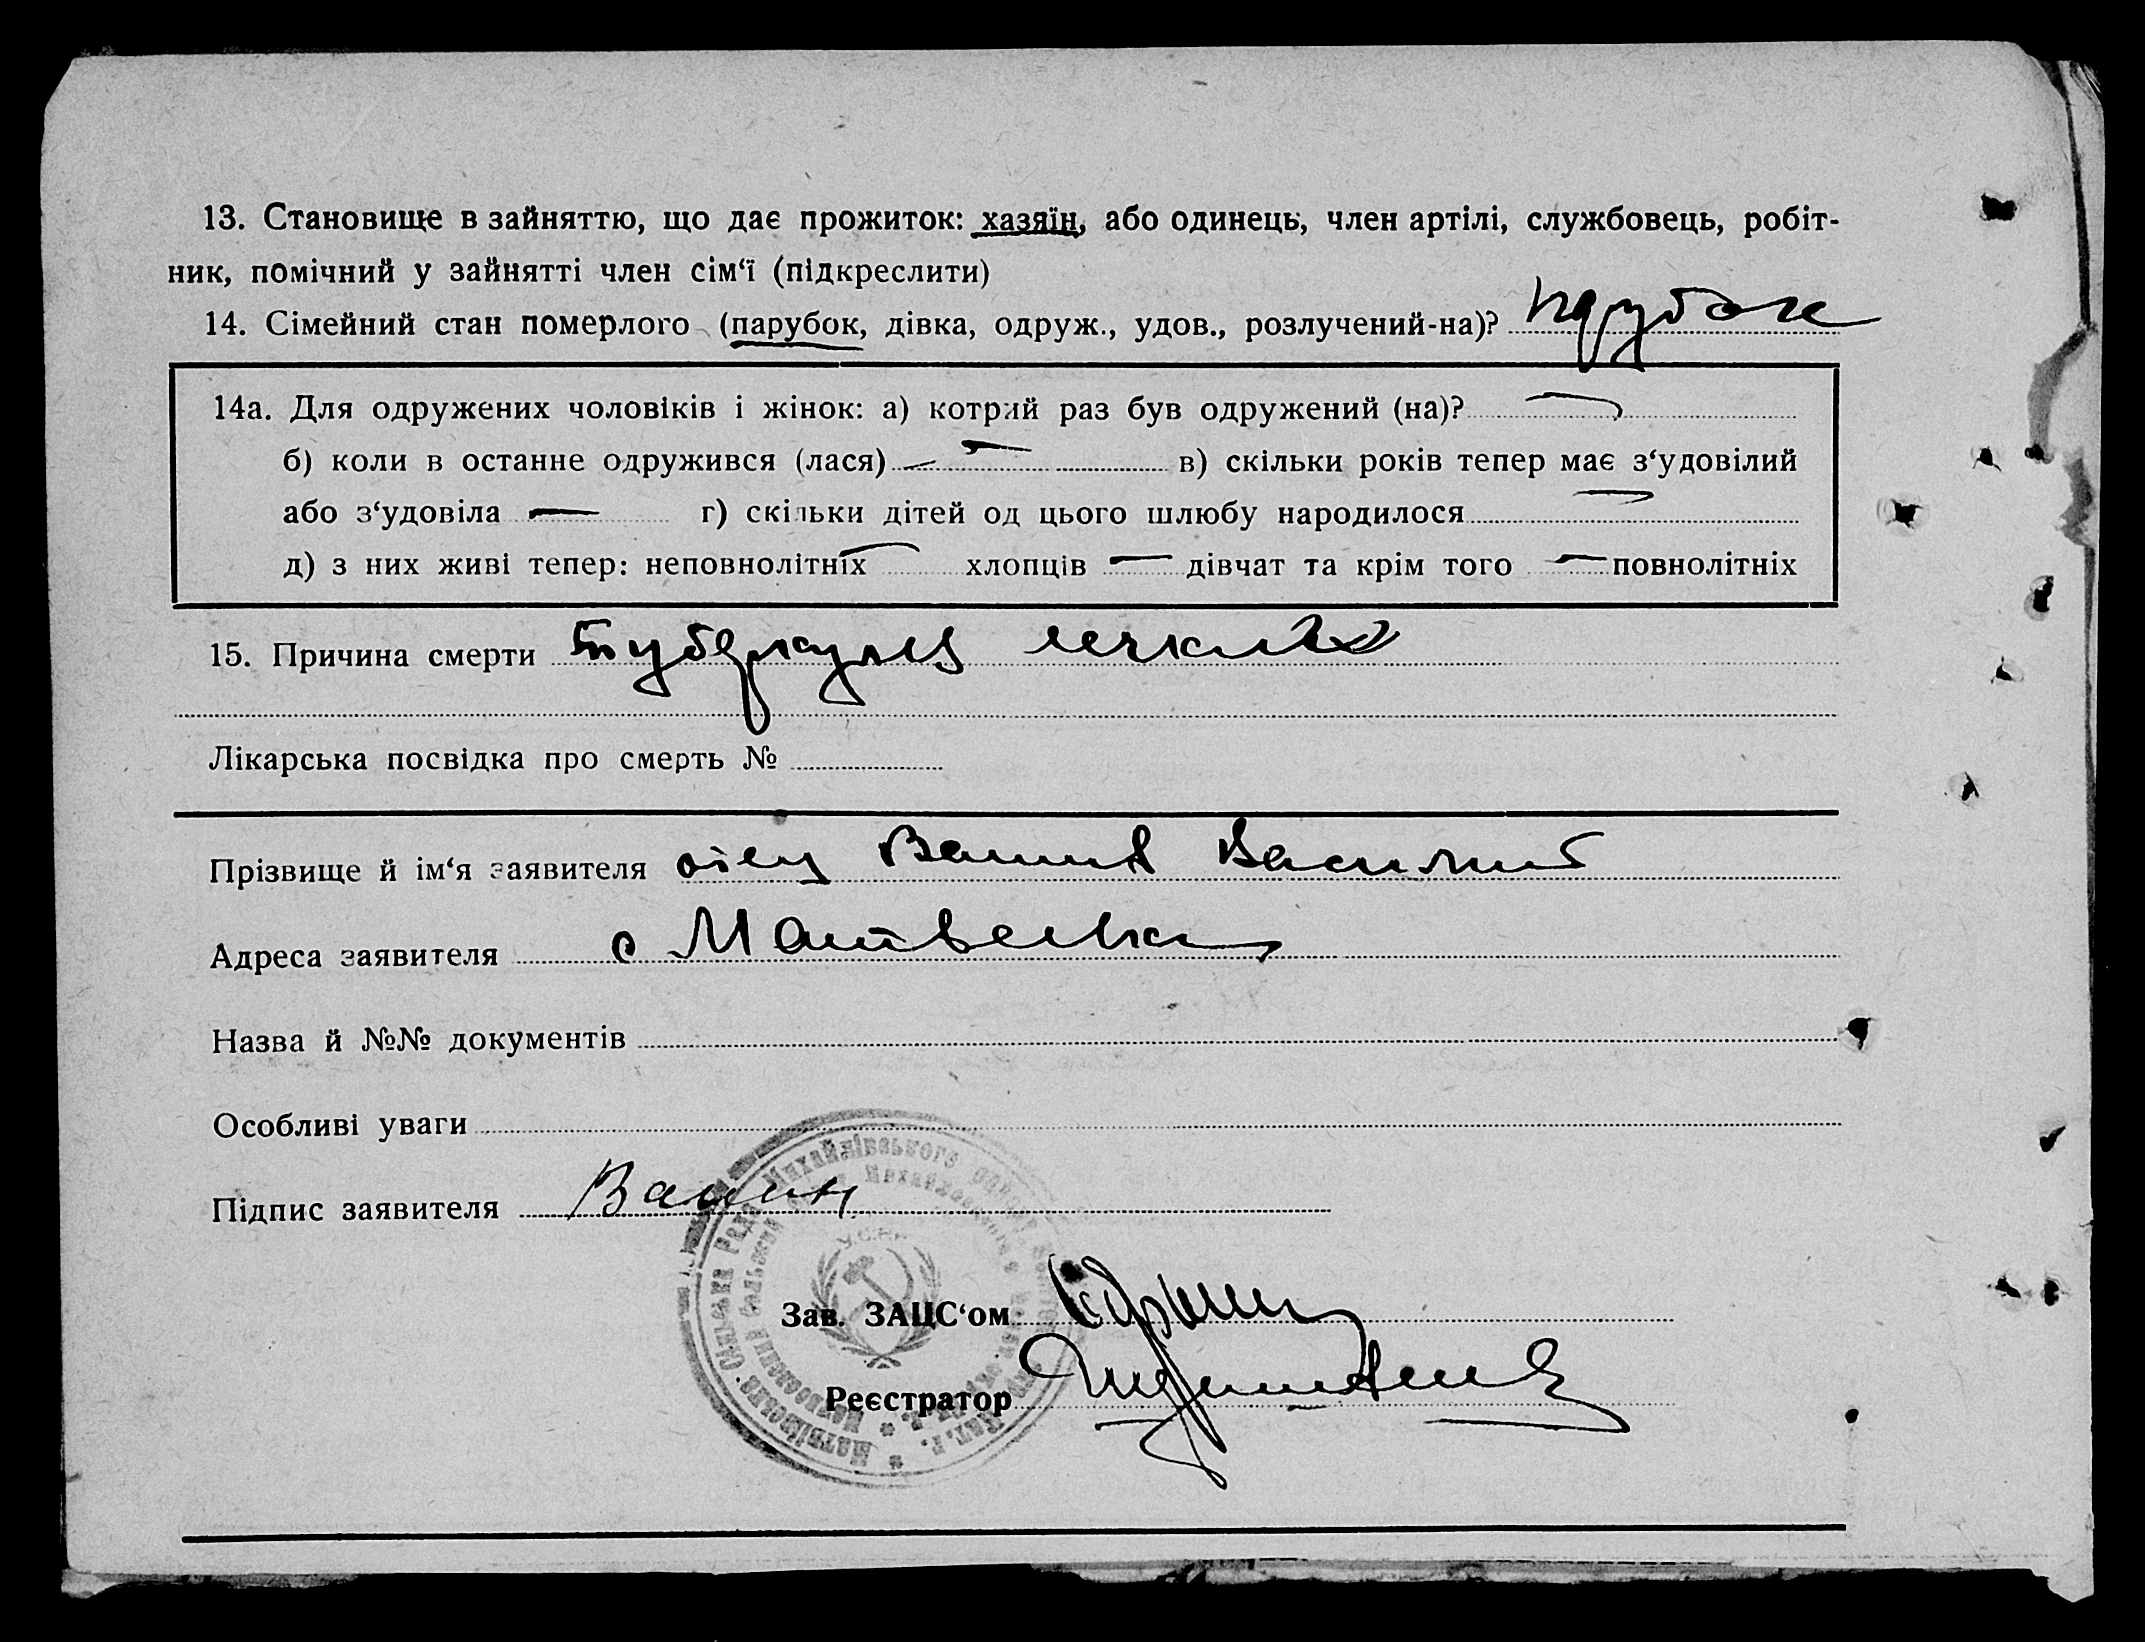 13. Становище в зайняттю, що дає прожиток: хазяїн, або одинець, член артілі, службовець, робіт-
ник, помічний у зайнятті член сім‘ї (підкреслити)
14. Сімейний стан померлого (парубок, дівка, одруж., удов., розлучений-на)? парубок
14а. Для одружених чоловіків і жінок: а) котрий раз був одружений (на)? —
б) коли в останне одружився (лася) — в) скільки років тепер має з‘удовілий
або з‘удовіла — г) скільки дітей од цього шлюбу народилося —
д) з них живі тепер: неповнолітніх — хлопців — дівчат та крім того — повнолітніх
15. Причина смерти туберкулез
Лікарська посвідка про смерть №
Прізвище й ім‘я заявителя отец Ванин Василий
Адреса заявителя с Матвеевка
Назва й №№ документів
Особливі уваги
Підпис заявителя Ванин
У.С.Р.Р.
Зав. ЗАЦС‘ом
Реєстратор